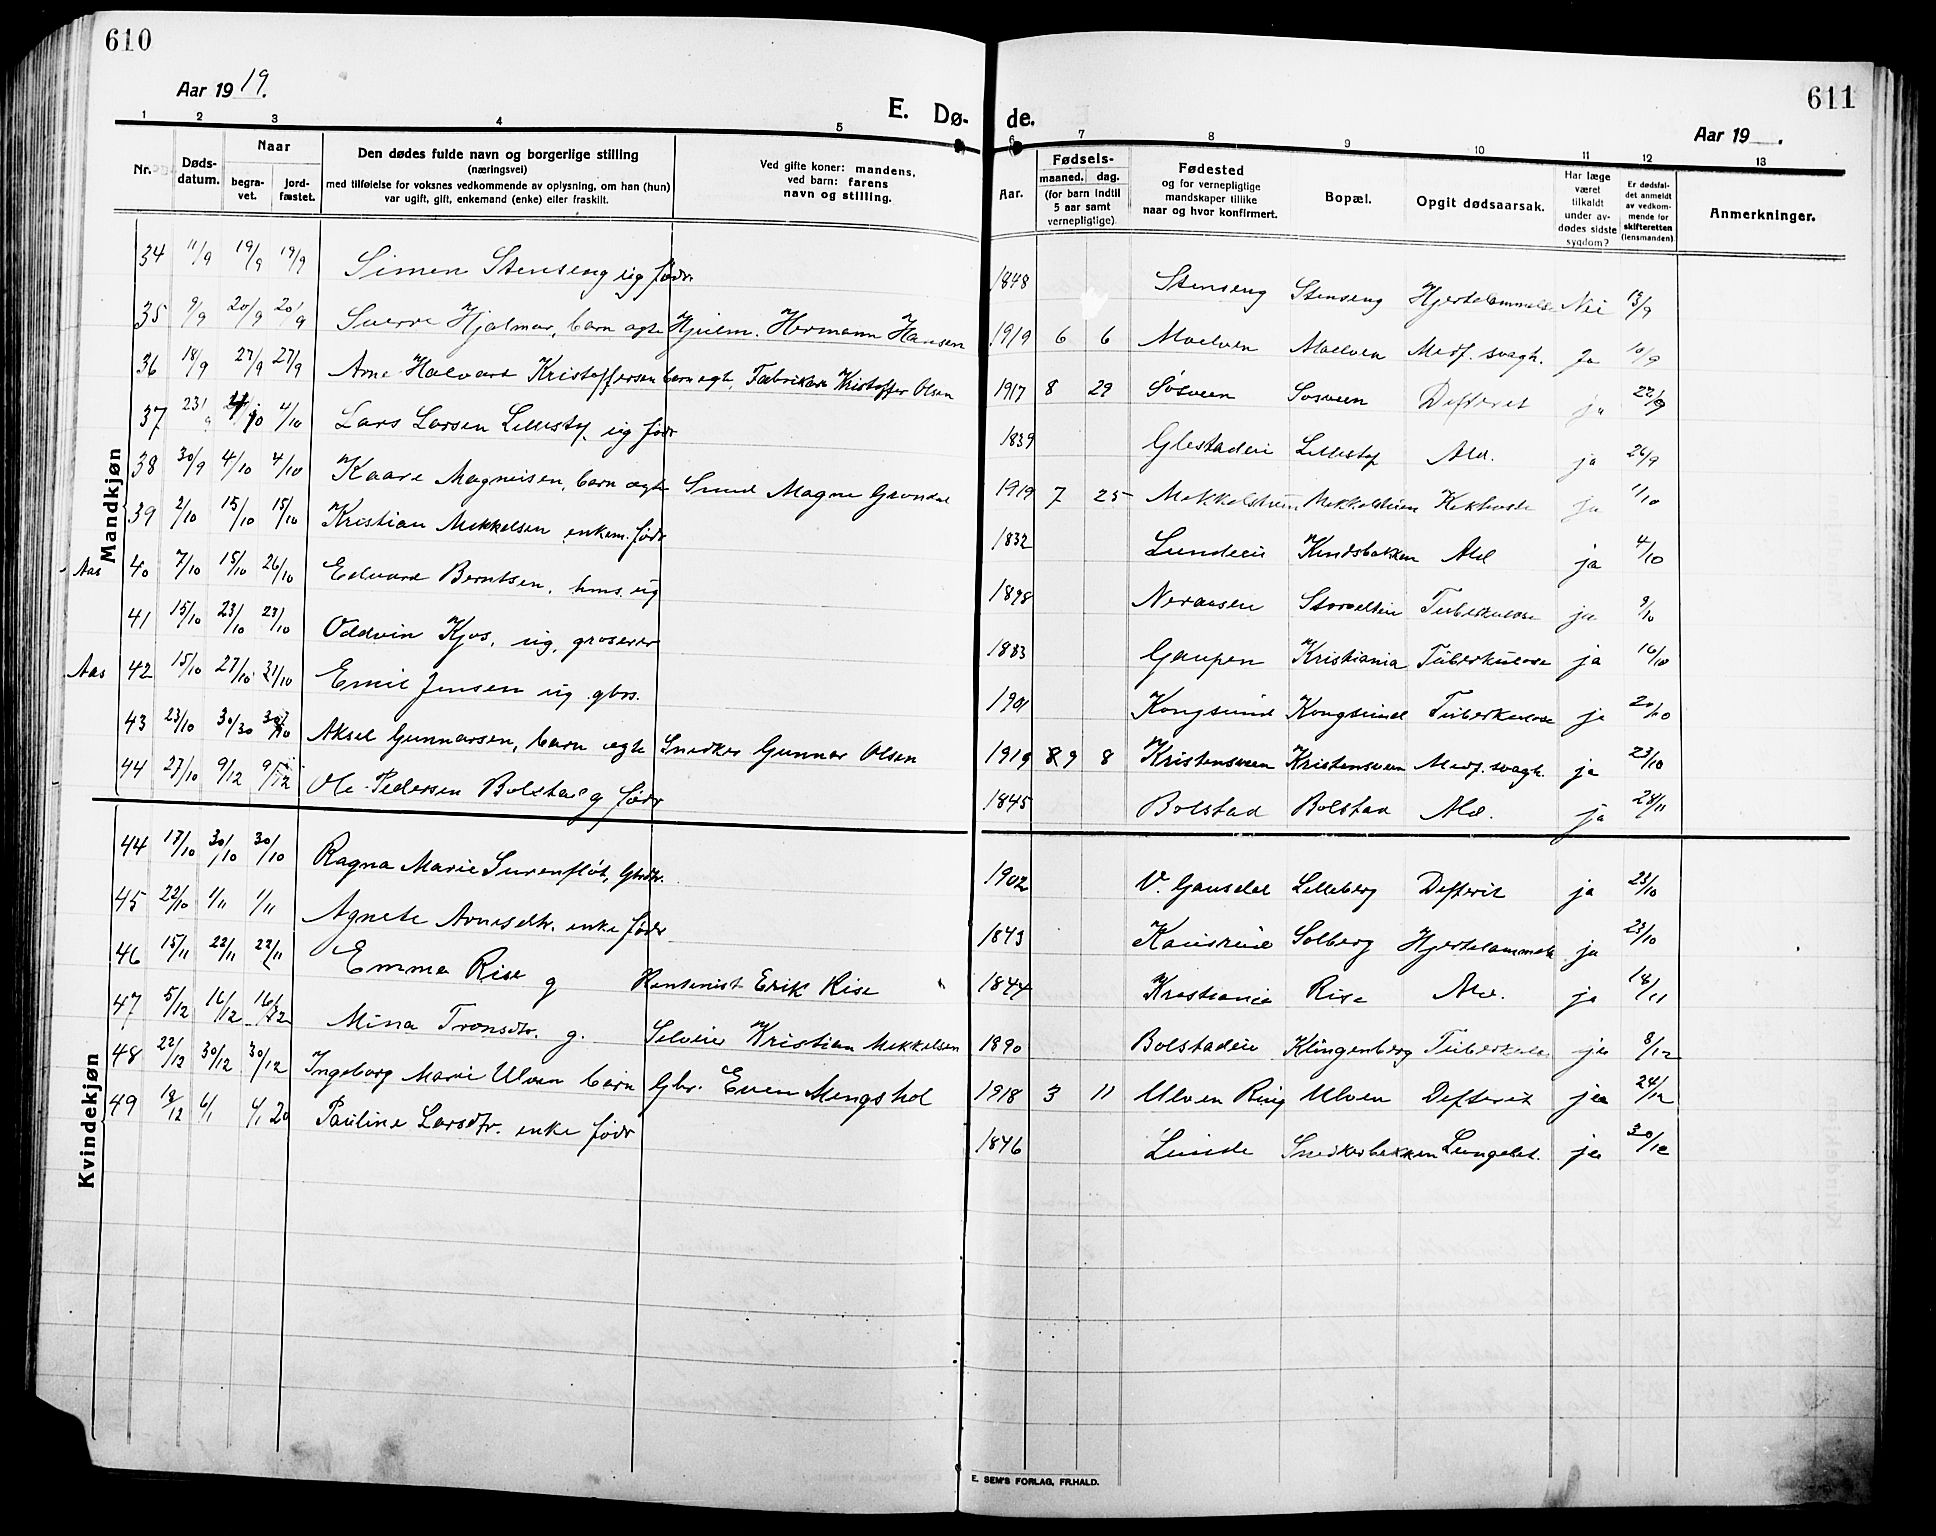 610
Aar 1919.
E. Dø-
de.
611
Aar 19 .
1 2 3 4 5 6 7 8 9 10 11 12 13
Nr. Døds-datum. Naar begra-vet. jord-fæstet. Den dødes fulde navn og borgerlige stilling (næringsvei) med tilføielse for voksnes vedkommende av oplysning, om han (hun) var ugift, gift, enkemand (enke) eller fraskilt. Ved gifte koner: mandens, ved barn: farens navn og stilling. Aar. Fødsels- maaned. dag. (for barn indtil 5 aar samt vernepligtige) Fødested og for vernepligtige mandskaper tillike naar og hvor konfirmert. Bopæl. Opgit dødsaarsak. Har læge været tilkaldt under av-dødes sidste sygdom? Er dødsfal-det anmeldt av vedkom-mende for skifteretten (lensmanden) Anmerkninger.
Mandkjøn
34 11/9 19/9 19/9 Simen Stenseng ug födr 1848 Stenseng Stenseng Nei 13/9
35 9/9 20/9 20/9 Sverre Hjalmar, barn ægte Hjulm. Hermann Hansen 1919 6 6 Moelven Moelven Medf. svagh. Ja 10/9
36 18/9 27/9 27/9 Arne Halvard Kristoffersen barn ægt. Fabrikarb Kristoffer Olsen 1917 8 29 Sösveen Sosveen Defterit ja 22/9
37 23/9 4/10 Lars Larsen ug födr 1839 Ald. ja 26/9
38 30/9 4/10 4/10 Kaare Magnusen, barn ægte Smed Magne 1919 7 25 Kikhoste ja 1/10
39 2/10 15/10 15/10 Kristian Mikkelsen enkem. födr 1832 Lundeie Ald ja 4/10
Aas 40 7/10 15/10 26/10 Edvard Berntsen, hms. ug 1898 Tuberkulose ja 9/10
41 15/10 23/10 23/10 Oddvin Kjos, ug, groserer 1883 Gaupen Kristiania Tuberkulose ja 16/10
Aas 42 15/10 27/10 31/10 Emil Jensen ug gbrs. 1901 Kongsund Kongsund Tuberkulose ja 20/10
43 23/10 30/30 30/10 Aksel Gunnarsen, barn ægte Snedker Gunnar Olsen 1919 9 8 Kristensveen Kristensveen Medf. svagh. ja 23/10
44 27/10 9/12 9/12 Ole Pedersen Bolstad g födr 1845 Bolstad Bolstad Ald. ja 28/11
Kvindekjøn
44 17/10 30/10 30/10 Ragna Marie Surenflöt, Gbrdtr. 1902 V. Gausdal Lilleberg Defterit ja 23/10
45 22/10 1/11 1/11 Agnete Arnesdtr. enke födr 1843 Solberg ja 23/10
46 15/11 22/11 22/11 Emma Rise g Erik Rise 1844 Kristiania Rise Ald. ja 18/11
47 5/12 16/12 16/12 Mina Tronsdtr. g. Selveier Kristian Mikkelsen 1890 Bolstadeie Klingenberg ja 8/12
48 22/12 30/12 30/12 Ingeborg Marie Ulven barn Gbr. Even Mengshol 1918 3 11 Ulven Ring Ulven Defterit ja 24/12
49 18/12 6/1 6/1 20 Pauline Larsdtr. enke födr 1846 Linde Snedkerbakken Lungebet. ja 30/12
E. SEM'S FORLAG, FR.HALD.